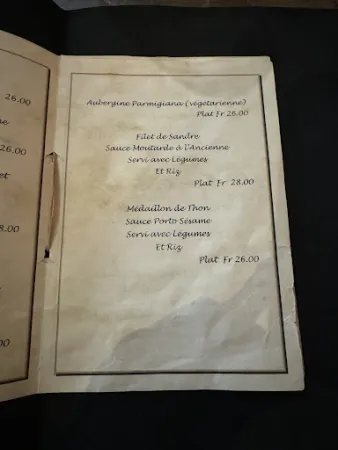 26.00
26.00
Aubergine Parmigiana (végétarienne)
Plat Fr 26.00
Filet de Sandre
Sauce Moutarde à l'Ancienne
Servi avec Légumes
Et Riz
Plat Fr 28.00
Médaillon de Thon
Sauce Porto Sésame
Servi avec Légumes
Et Riz
Plat Fr 26.00